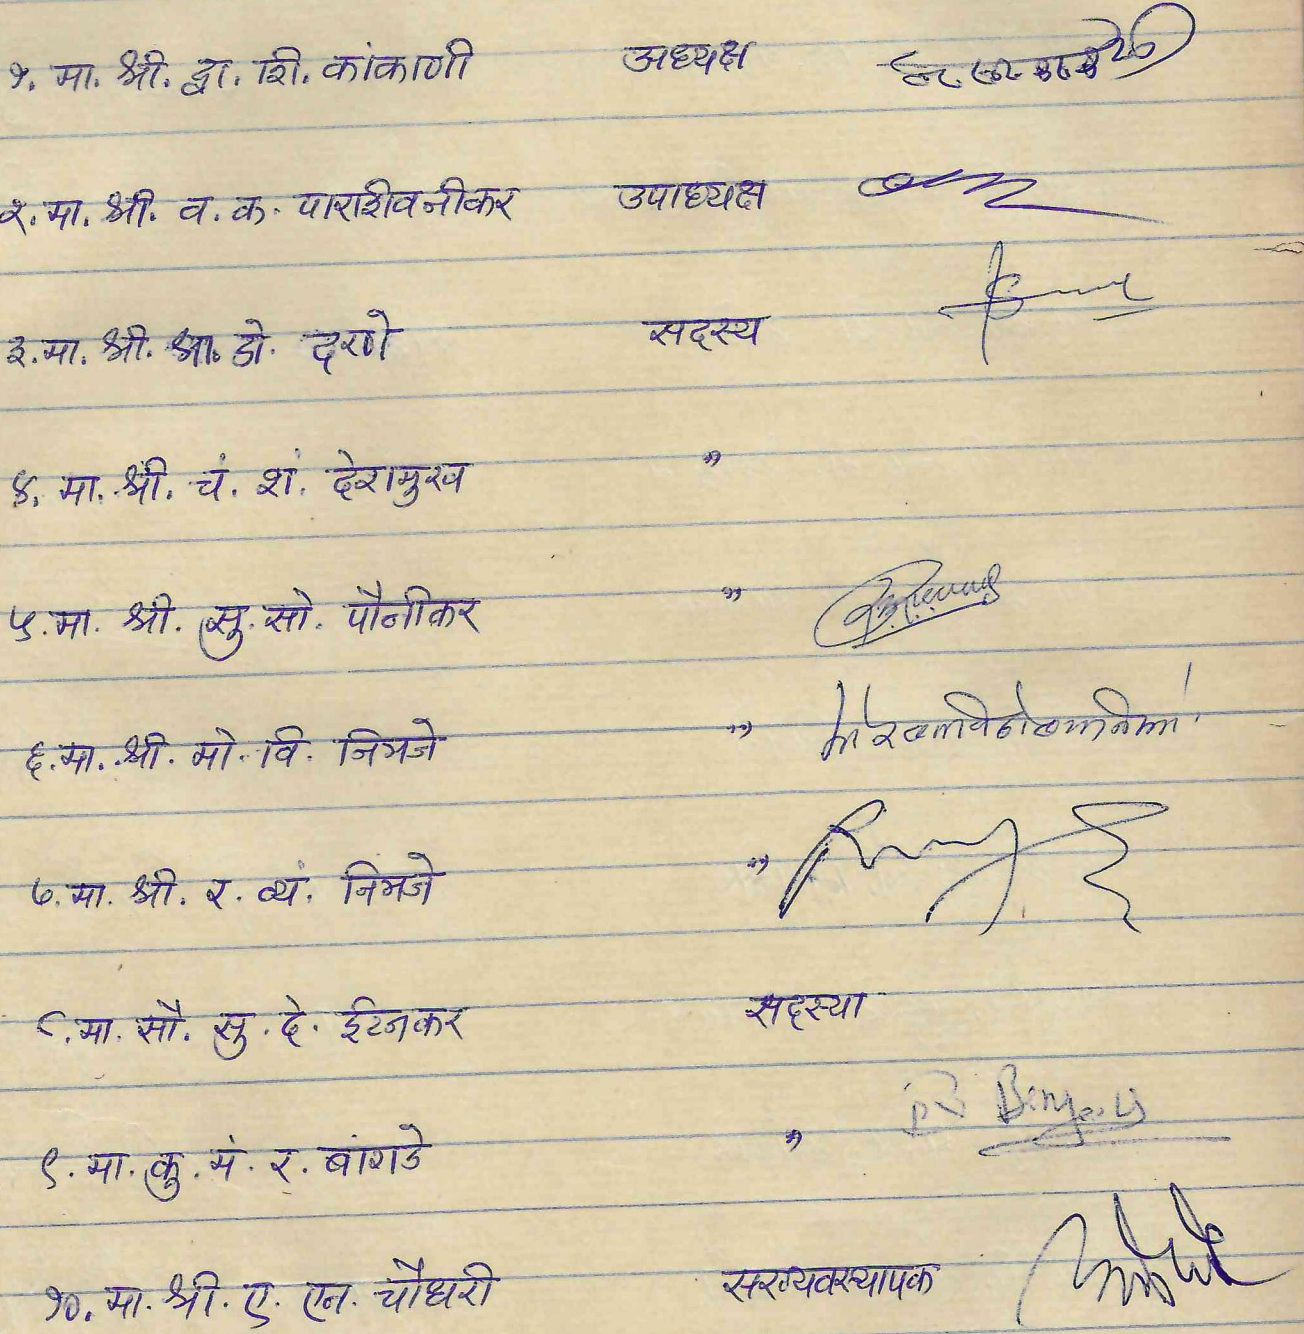 १. मा. श्री. द्वा. शि. कांकाणी अध्यक्ष
२. मा. श्री. व. क. पाराशीवनीकर उपाध्यक्ष
३. मा. श्री. श्रा. डो. दरणे सदस्य
४. मा. श्री. चं. शं. देशमुख "
५. मा. श्री. सु. सो. पौनीकर "
६. मा. श्री. मो. वि. निमजे "
७. मा. श्री. र. व्यं. निमजे "
८. मा. सौ. सु. दे. ईटनकर सदस्या
९. मा. कु. मं. र. बांगडे "
१०. मा. श्री. ए. एन. चौधरी सरव्यवस्थापक